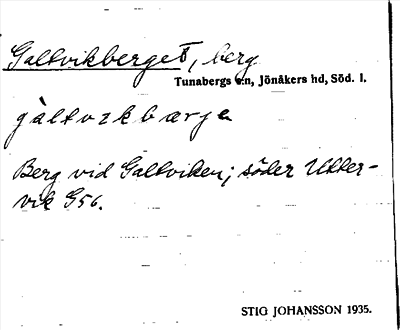 Galtvikberget, berg
Tunabergs sn, Jönåkers hd, Söd. l.
gàltvikbærje
Berg vid Galtviken; söder Utter-
vik G56.
STIG JOHANSSON 1935.